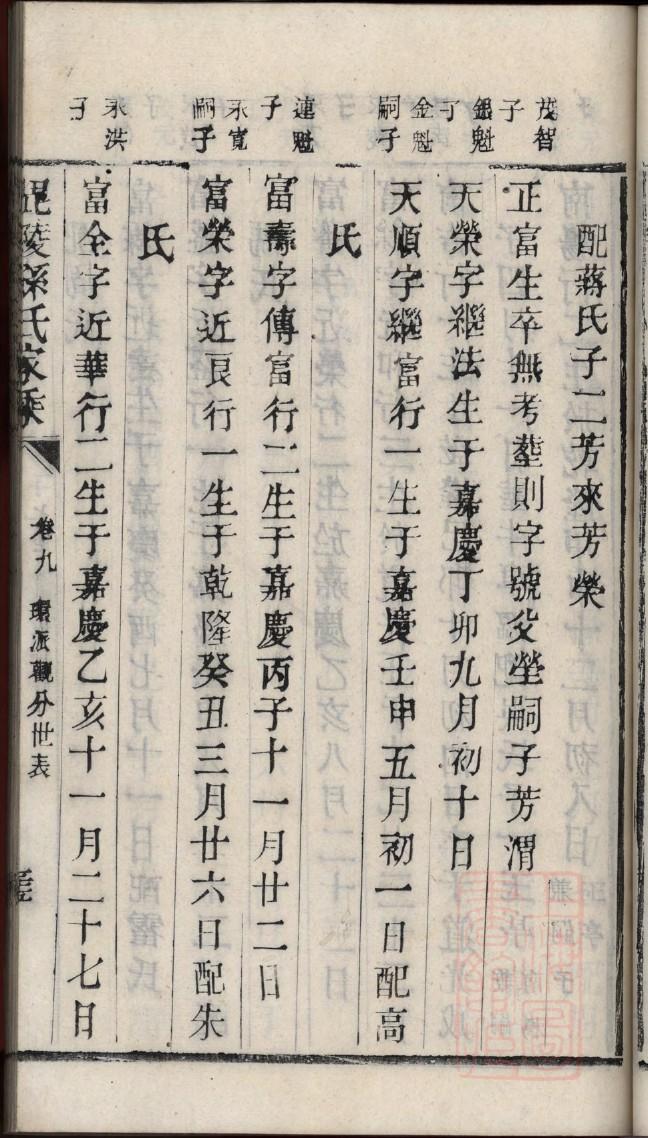 配蔣氏子二芳來芳榮
茂智子
正富生卒無考塟則字號父塋嗣子芳渭
銀魁子
天榮字繼法生于嘉慶丁卯九月初十日
金魁嗣子
天順字繼富行一生于嘉慶壬申五月初一日配高
氏
連魁子
富壽字傳富行二生于嘉慶丙子十一月廿二日
永寬嗣子
富榮字近良行一生于乾隆癸丑三月廿六日配朱
氏
永洪子
富全字近華行二生于嘉慶乙亥十一月二十七日
毘陵孫氏家乘
卷九
環派觀分世表